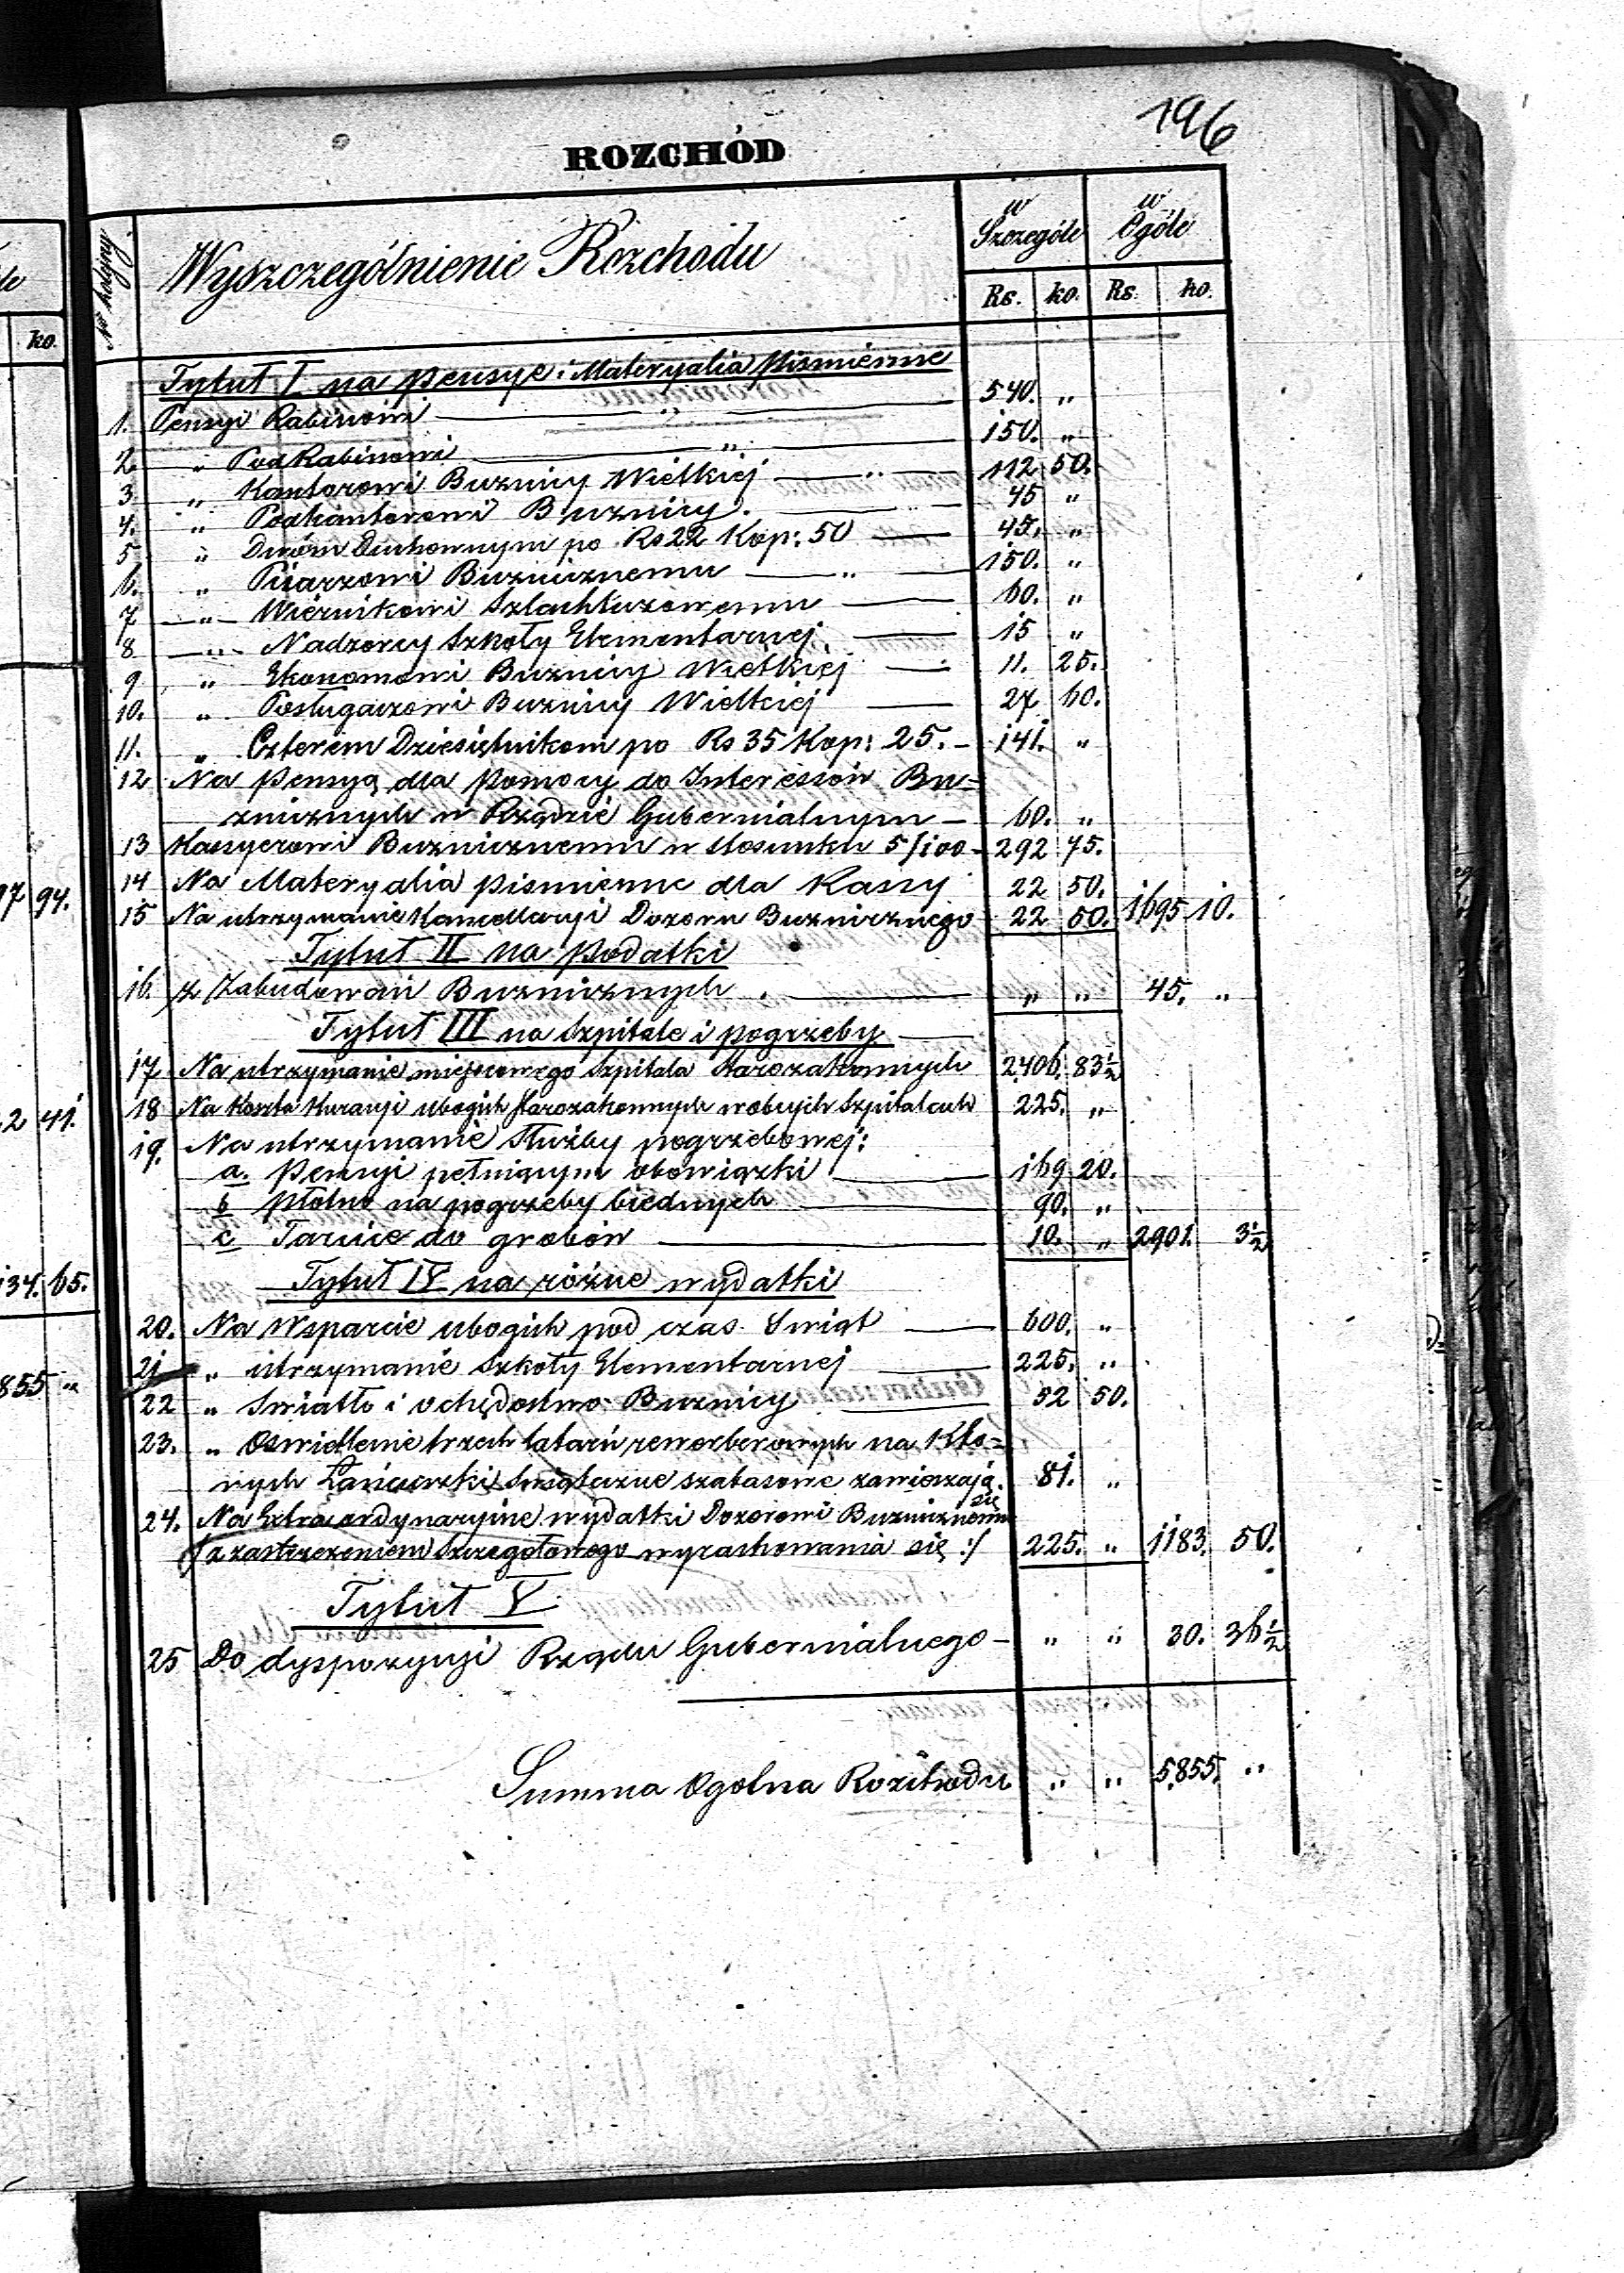 196
ROZCHÓD
No kolejny
Wyszczególnienie Rozchodu
w Szczególe
w Ogóle
Rs. ko. Rs. ko.
ko.
Tytuł I na pensye i Materyalia Piśmienne
1. Pensyi Rabinowi — „ — 540. „
2 „ PodRabinowi — „ — 150. „
3 „ Kantorowi Buznicy Wielkiej — „ — 112 50.
4. „ Podkantorowi Buznicy. — 45 „
5 „ Dwóm Duchownym po Rs 22 Kop: 50 — 45. „
6. „ Pisarzowi Buznicznemu — „ — 150. „
7 „ Wiernikowi Szlachtuzowemu — 60. „
8 „ Nadzorcy Szkoły Elementarnej — 15 „
9 „ Ekonomowi Buznicy Wielkiej — 11. 25.
10. „ Posługaczowi Buznicy Wielkiej — 27 60.
11. „ Czterem Dziesiętnikom po Rs 35 Kop: 25. – 141. „
12 Na Pensyą dla Pomocy do Interessów Bu=
znicznych w Rządzie Gubernialnym – 60. „
13 Kassyerowi Buznicznemu w stosunku 5/100 – 292 75.
14 Na Materyalia piśmienne dla Kassy 22 50.
15 Na utrzymanie Kancellaryi Dozoru Buznicznego 22 50. 1695 10.
Tytuł II na podatki
16. z Zabudowań Buznicznych . — „ „ 45. „
Tytuł III na Szpitale i pogrzeby —
17 Na utrzymanie miejscowego Szpitala Starozakonnych 2,406. 83½
18 Na Koszta Kuracyi ubogich Starozakonnych w obcych Szpitalach 225. „
19. Na utrzymanie służby pogrzebowej:
a. Pensyi pełniącym obowiązki — 169 20.
b płótno na pogrzeby biednych — 90. „
c Tarcice do grobów — 10. „ 2901. 3½
Tytuł IV na różne wydatki
20. Na Wsparcie ubogich pod czas Swiąt — 600. „
21 „ utrzymanie Szkoły Elementarnej — 225. „
22 „ Swiatło i ochędostwo Buznicy — 52 50.
23. „ Oswietlenie trzech latarń rewerberowych na Któ=
rych Łańcuszki Swiąteczne szabasowe zawieszają się 81. „
24. Na Extraordynaryine wydatki Dozorowi Buznicznemu
(z zastrzeżeniem Szczegółowego wyrachowania się :/ 225. „ 1183. 50.
Tytuł V
25 Do dyspozycyi Rządu Gubernialnego – „ „ 30. 36½
Summa Ogolna Rozchodu „ „ 5,855. „
94.
2 41.
134. 65.
855 „